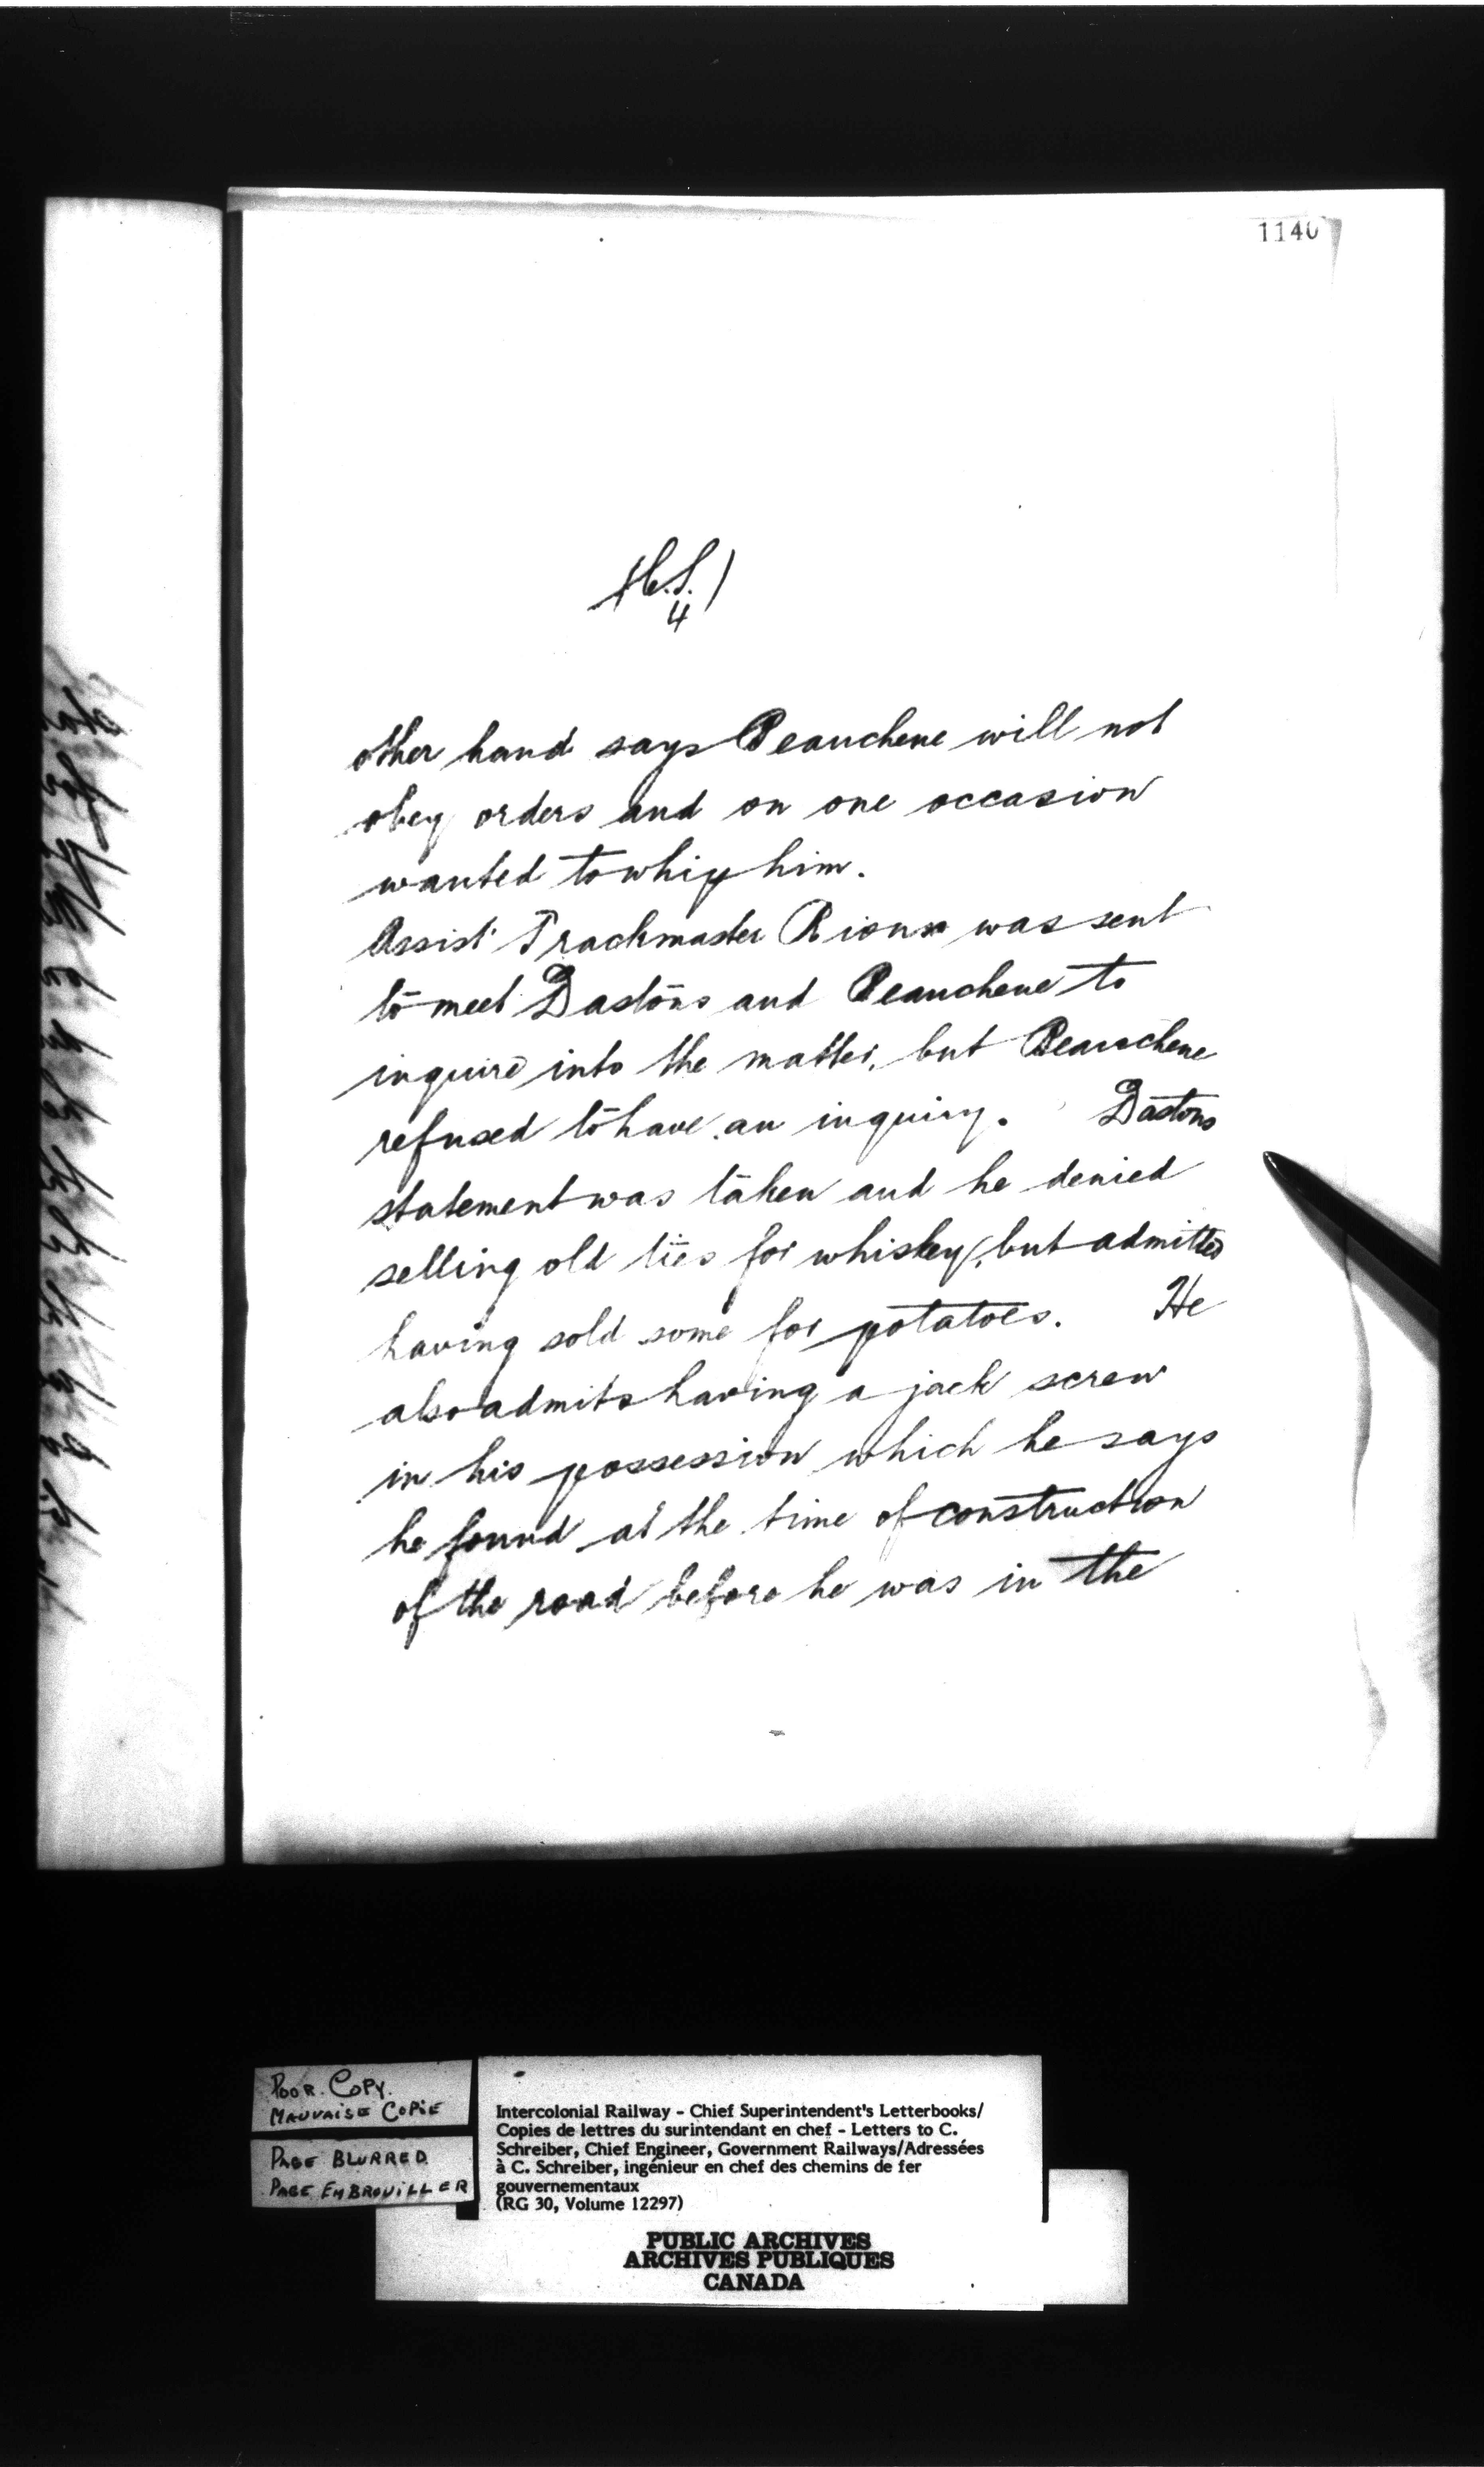 1140
(C.S.)
4
other hand says Beauchene will not
obey orders and on one occasion
wanted to whip him.
Assist Trackmaster Rioux was sent
to meet Dastous and Beauchene to
inquire into the matter, but Beauchene
refused to have an inquiry. Dastous
statement was taken and he denied
selling old ties for whiskey, but admitted
having sold some for potatoes. He
also admits having a jack screw
in his possession which he says
he found at the time of construction
of the road before he was in the
POOR COPY.
MAUVAISE COPIE
PAGE BLURRED
PAGE EMBROUILLER
Intercolonial Railway - Chief Superintendent's Letterbooks/
Copies de lettres du surintendant en chef - Letters to C.
Schreiber, Chief Engineer, Government Railways/Adressées
à C. Schreiber, ingénieur en chef des chemins de fer
gouvernementaux
(RG 30, Volume 12297)
PUBLIC ARCHIVES
ARCHIVES PUBLIQUES
CANADA